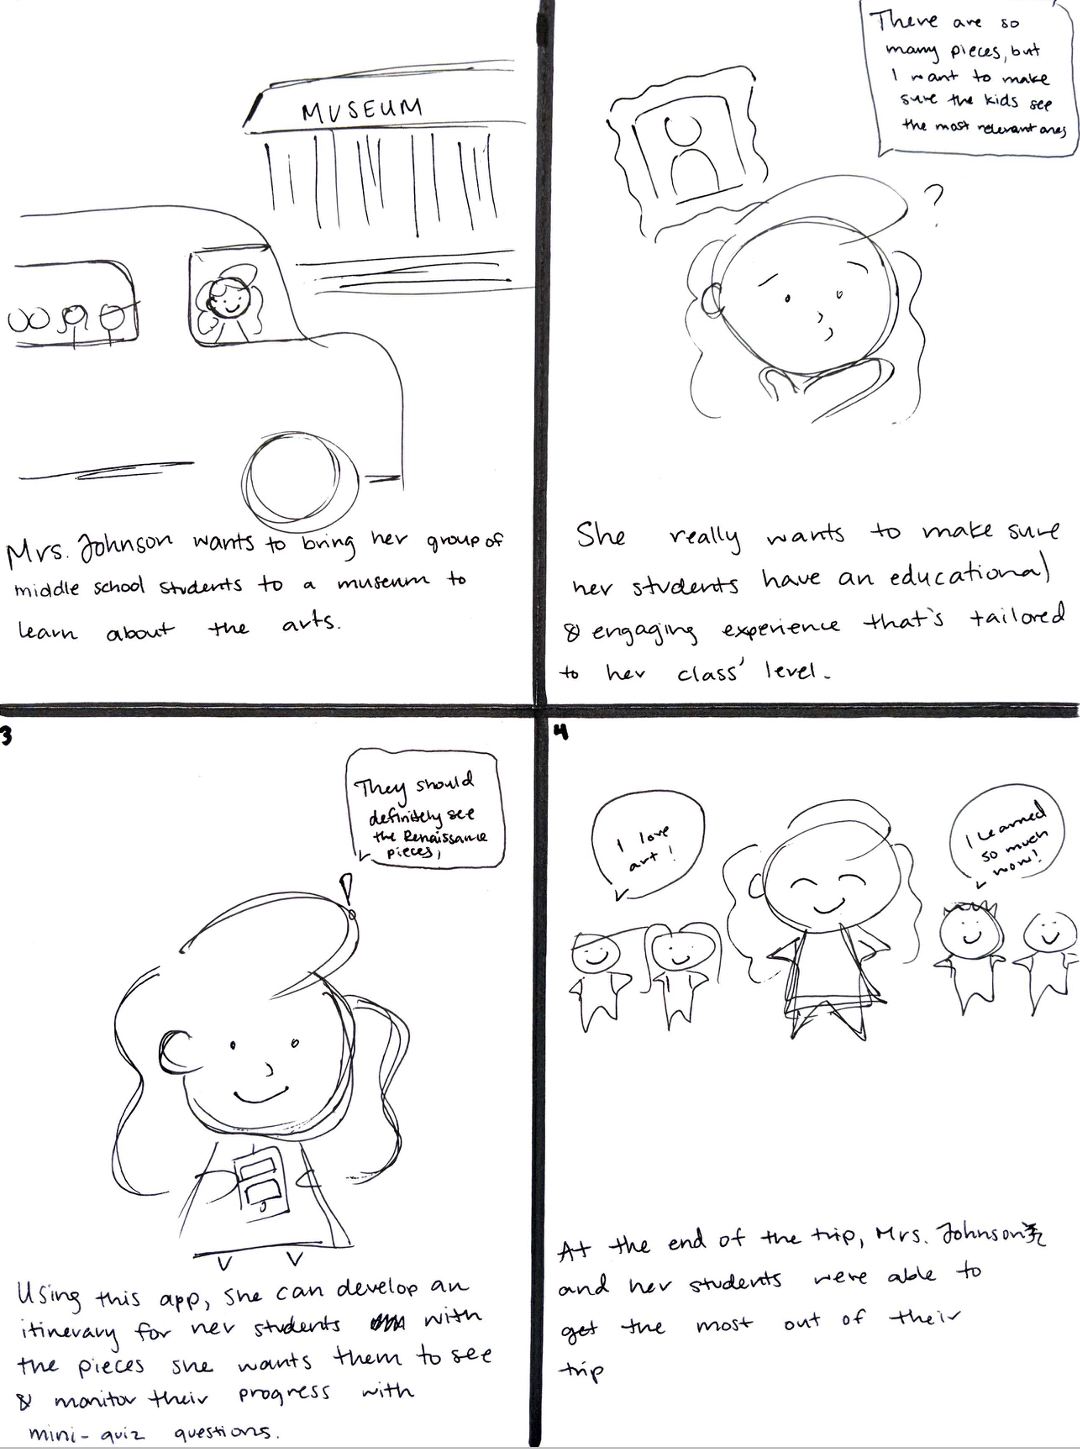 MUSEUM
Mrs. Johnson wants to bring her group of
middle school students to a museum to
learn about the arts.
There are so
many pieces, but
I want to make
sure the kids see
the most relevant ones
?
She really wants to make sure
her students have an educational
& engaging experience that's tailored
to her class' level.
3
They should
definitely see
the Renaissance
pieces,
!
Using this app, she can develop an
itinerary for her students with
the pieces she wants them to see
& monitor their progress with
mini-quiz questions.
4
I love
art!
I learned
so much
now!
At the end of the trip, Mrs. Johnson
and her students were able to
get the most out of their
trip